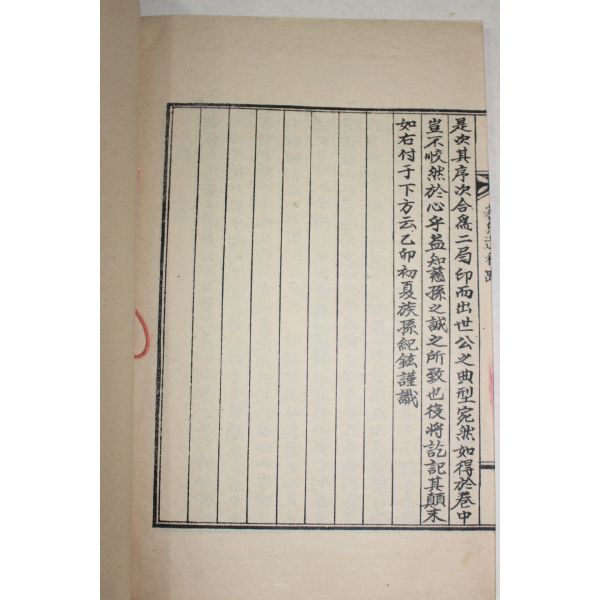 是次其序次合爲二局印而出世公之典型宛然如得於卷中
豈不皎然於心乎益知慈孫之誠之所致也役將訖記其顚末
如右付于下方云乙卯初夏族孫紀鉉謹識